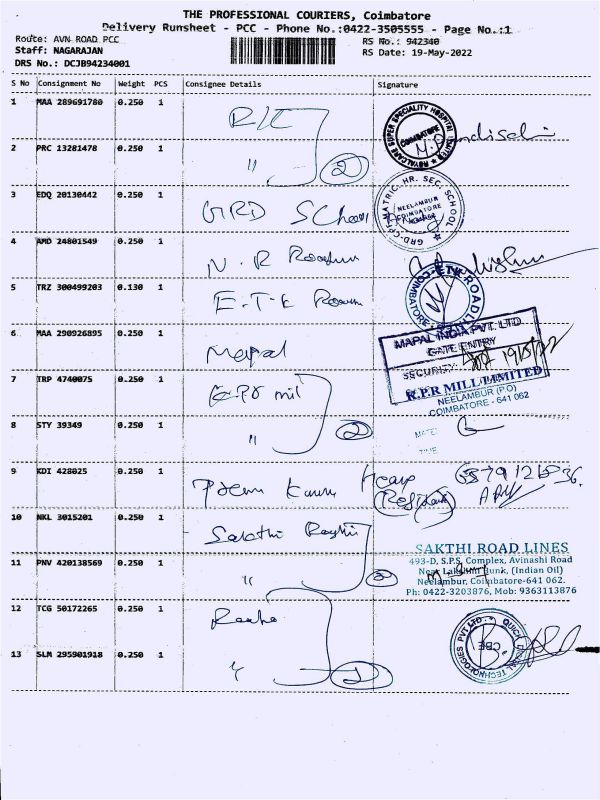 THE PROFESSIONAL COURIERS, Coimbatore
Delivery Runsheet - PCC - Phone No.:0422-3505555 - Page No.:1
Route: AVN ROAD PCC
Staff: NAGARAJAN
DRS No.: DCJB94234001
RS No.: 942340
RS Date: 19-May-2022
S No Consignment No Weight PCS Consignee Details Signature
1 MAA 289691780 0.250 1
ROYALCARE SUPER SPECIALITY HOSPITAL LIMITED
COIMBATORE
2 PRC 13281478 0.250 1 " 2
3 EDQ 20130442 0.250 1 GRD School
GRD-CPF MATRIC. HR. SEC. SCHOOL
NEELAMBUR
COIMBATORE
4 AMD 24801549 0.250 1 N. R
5 TRZ 300499203 0.130 1 E.T.E
COIMBATORE
6 MAA 290926895 0.250 1 Mapal
MAPAL INDIA PVT. LTD
GATE ENTRY
SECURITY 19/5/22
7 TRP 4740075 0.250 1 KPR mil
K.P.R MILL LIMITED
NEELAMBUR (P.O)
COIMBATORE - 641 062
8 STY 39349 0.250 1 " 2
9 KDI 428025 0.250 1
10 NKL 3015201 0.250 1 Sakthi
SAKTHI ROAD LINES
493-D, S.P.S. Complex, Avinashi Road
Near Lakshmi Junk, (Indian Oil)
Neelambur, Coimbatore-641 062.
Ph: 0422-3203876, Mob: 9363113876
11 PNV 420138569 0.250 1 " 2
12 TCG 50172265 0.250 1
TECHNOLOGIES PVT LTD
CBE
13 SLM 295901918 0.250 1 " 2